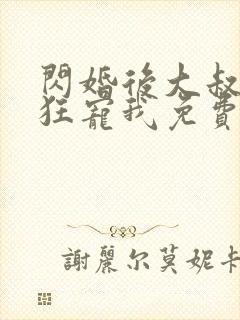 閃婚後大叔
狂寵我免費
謝麗尔莫妮卡